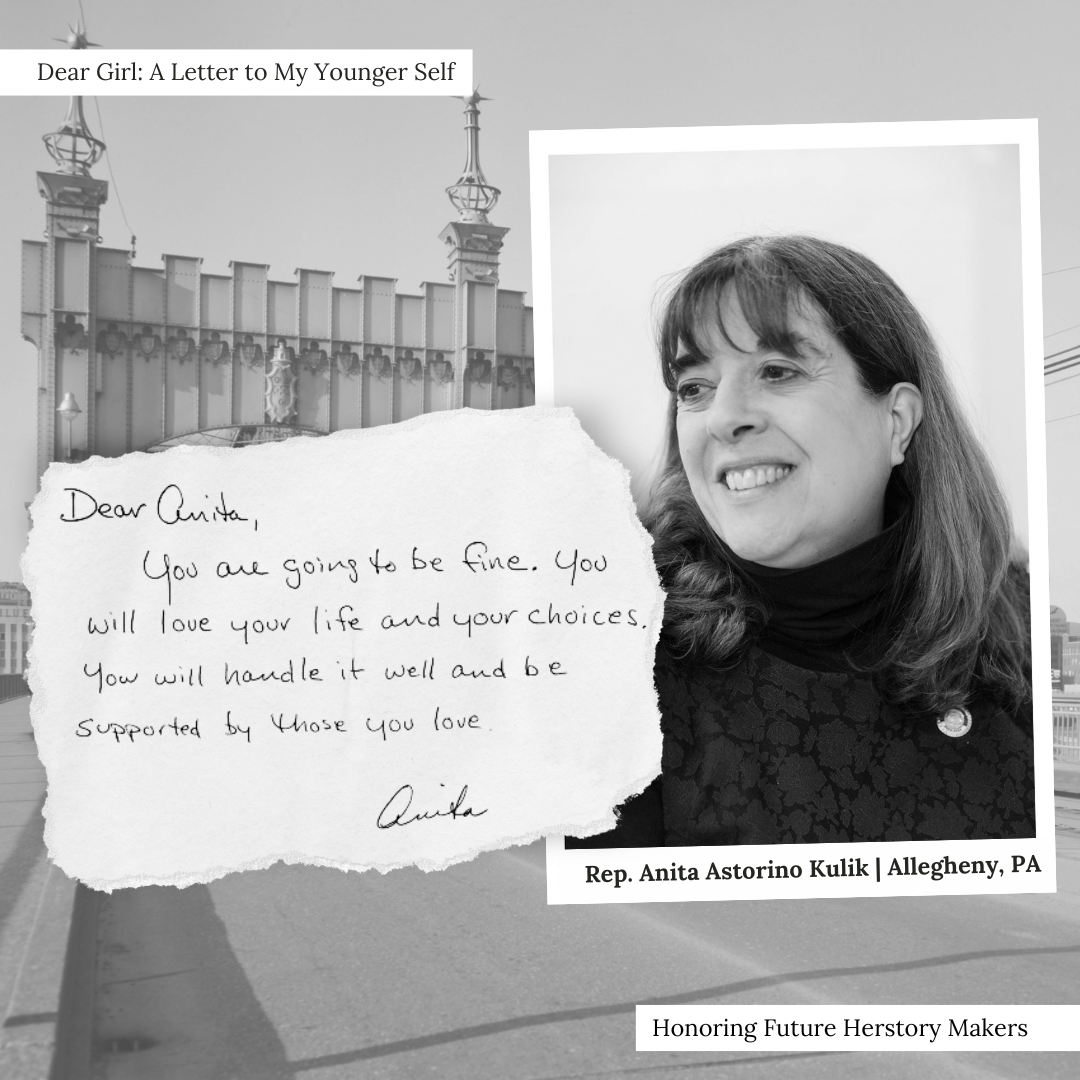 Dear Girl: A Letter to My Younger Self
Dear Anita,
You are going to be fine. You
will love your life and your choices.
You will handle it well and be
supported by those you love.
Anita
Rep. Anita Astorino Kulik | Allegheny, PA
Honoring Future Herstory Makers